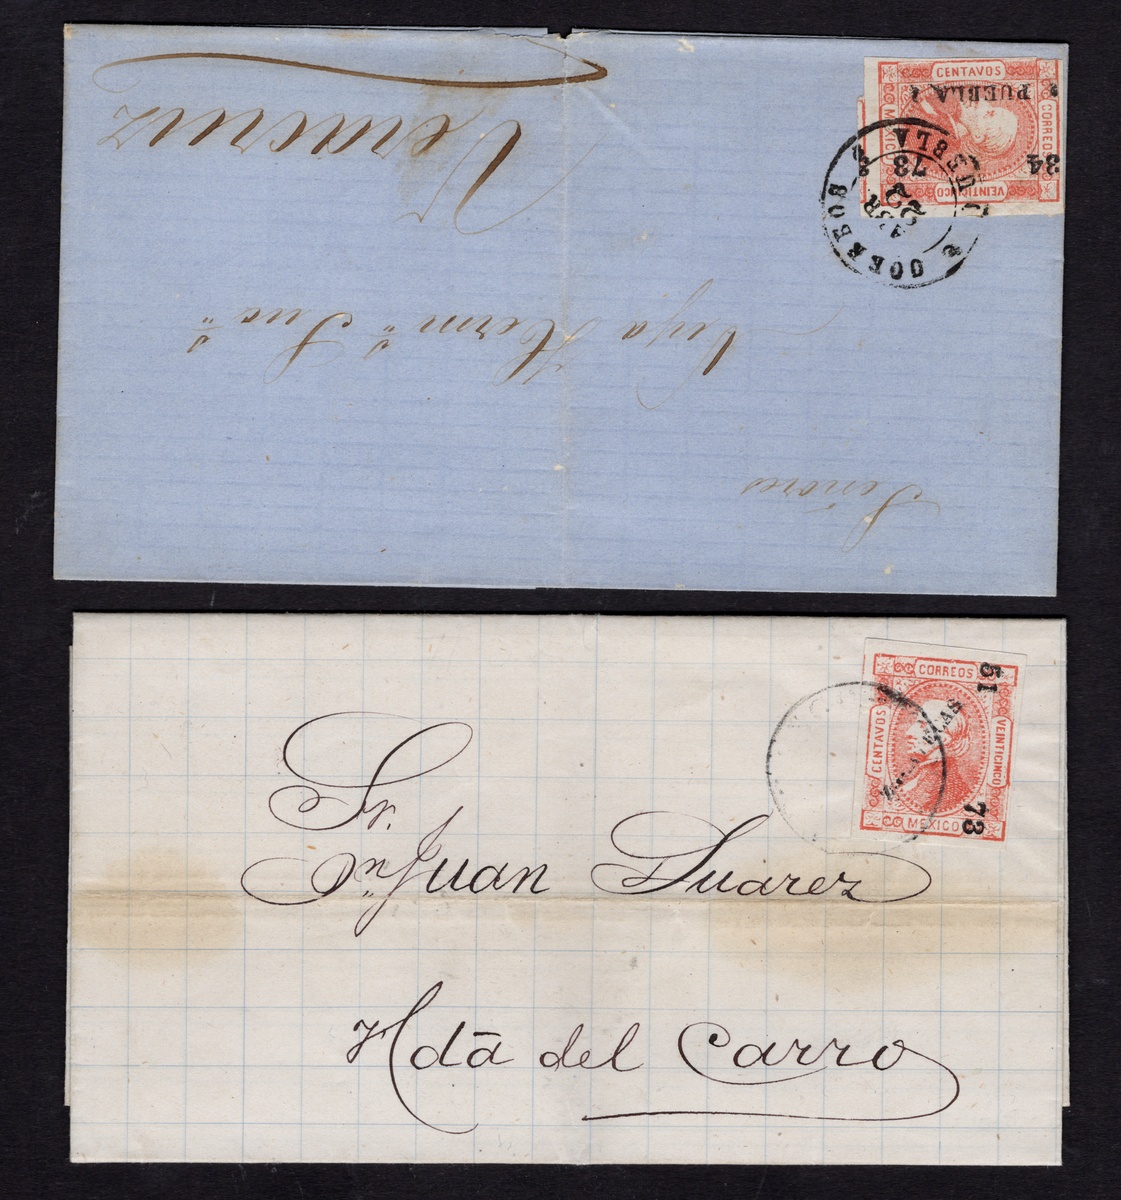 Señores
Veracruz
CENTAVOS
CORREOS
MEXICO
VEINTICINCO
PUEBLA
34 73
CORREOS
PUEBLA
ABR
22
CORREOS
CENTAVOS
VEINTICINCO
MEXICO
51 73
Sr. Dn Juan Suarez
Hdā del Carro